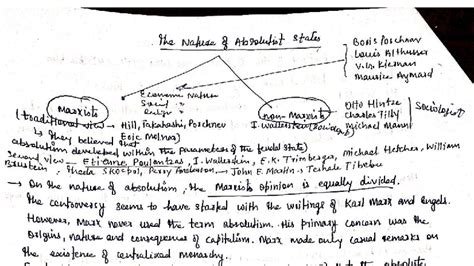 The Nature of Absolutist States
Boris Porchnov
Louis Althusser
V.G. Kiernan
Maurice Aymard
Economic Nature
Social
Marxists
non-Marxists
Otto Hintze
Charles Tilly
Michael Mann
Sociologist
(traditional view) → Hill, Takahashi, Porchnev
Eric Molnar)
I. Wallerstein
↳ They believed that
absolutism developed within the parameters of the feudal state)
Second view → Etienne Poulantzas, I. Wallerstein, E.K. Trimberger, Michael Hetcher, William
Theda Skocpol, Perry Anderson → John E. Martin → Teshale Tibebu
→ On the nature of absolutism, the Marxists opinion is equally divided.
The controversy seems to have started with the writings of Karl Marx and Engels.
However, Marx never used the term absolutism. His primary concern was the
Origins, nature and consequences of capitalism. Marx made only casual remarks on
the existence of centralized monarchy.
to the absolute